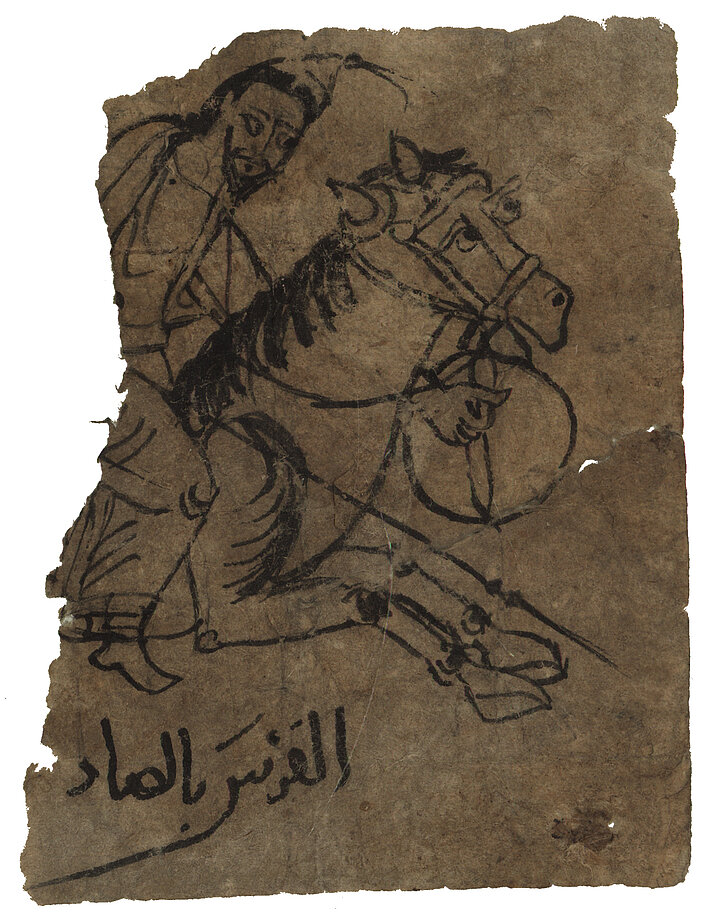 الفَرَسَ بالصاد